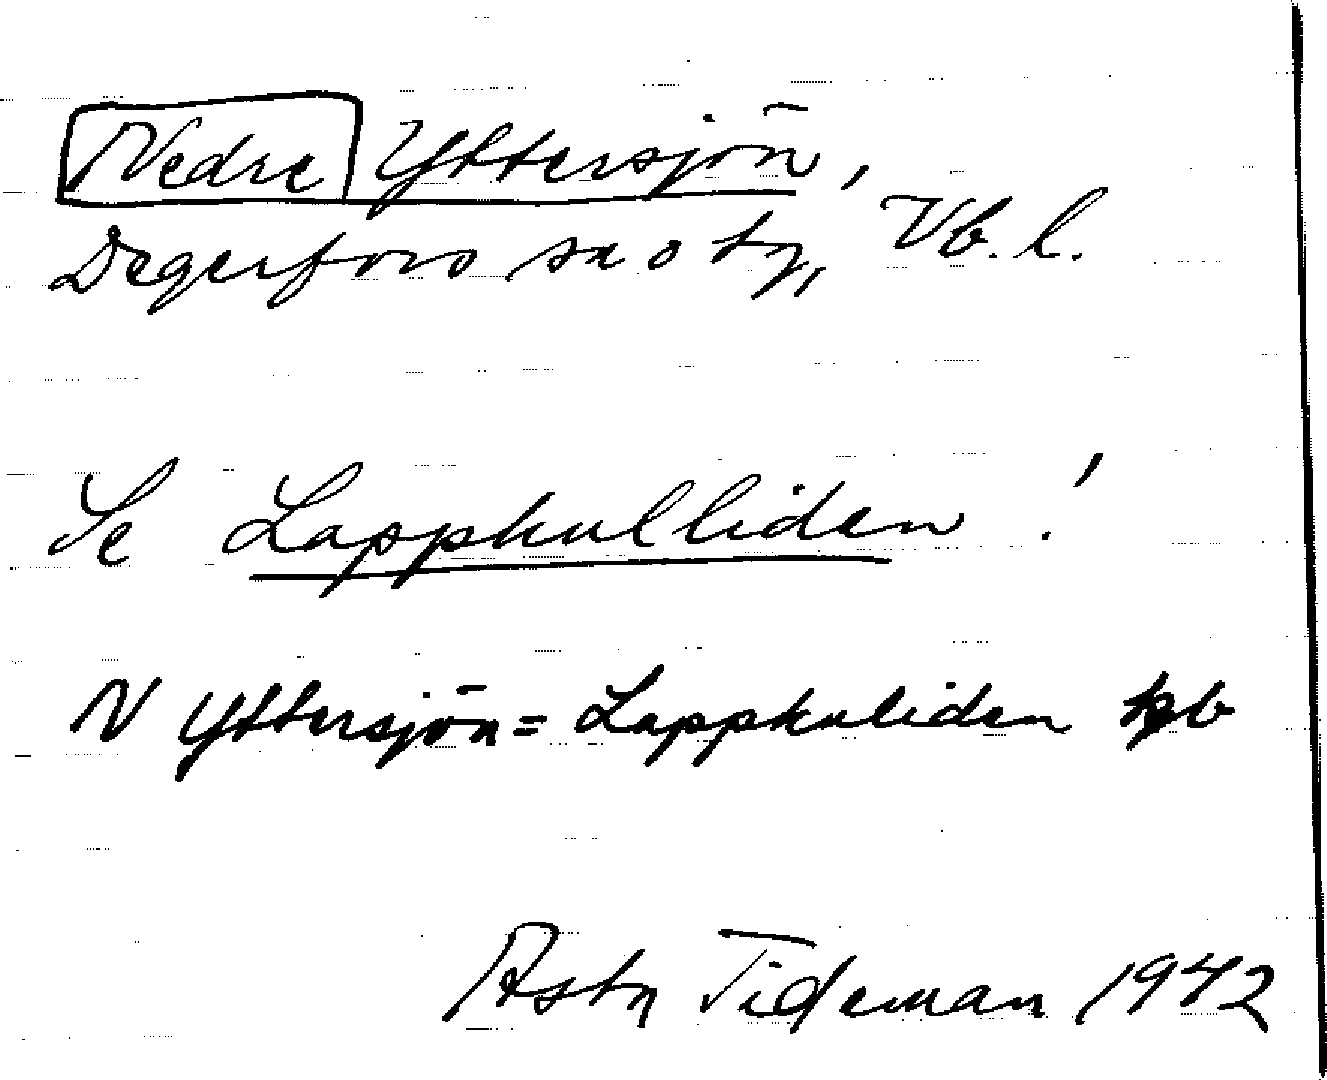 Nedre Yttersjön,
Degerfors sn o tg, Vb. l.
Se Lappkulliden!
N Yttersjön = Lappkuliden
Asta Tideman 1942